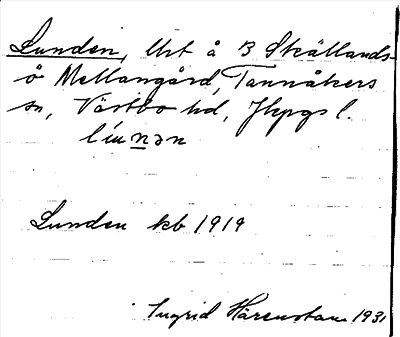 Lunden, lht å B Skällands-
ö Mellangård, Tannåkers
sn, Västbo hd, Jkpgs l.
Lunden kb 1919
Ingrid Härenstam 1931